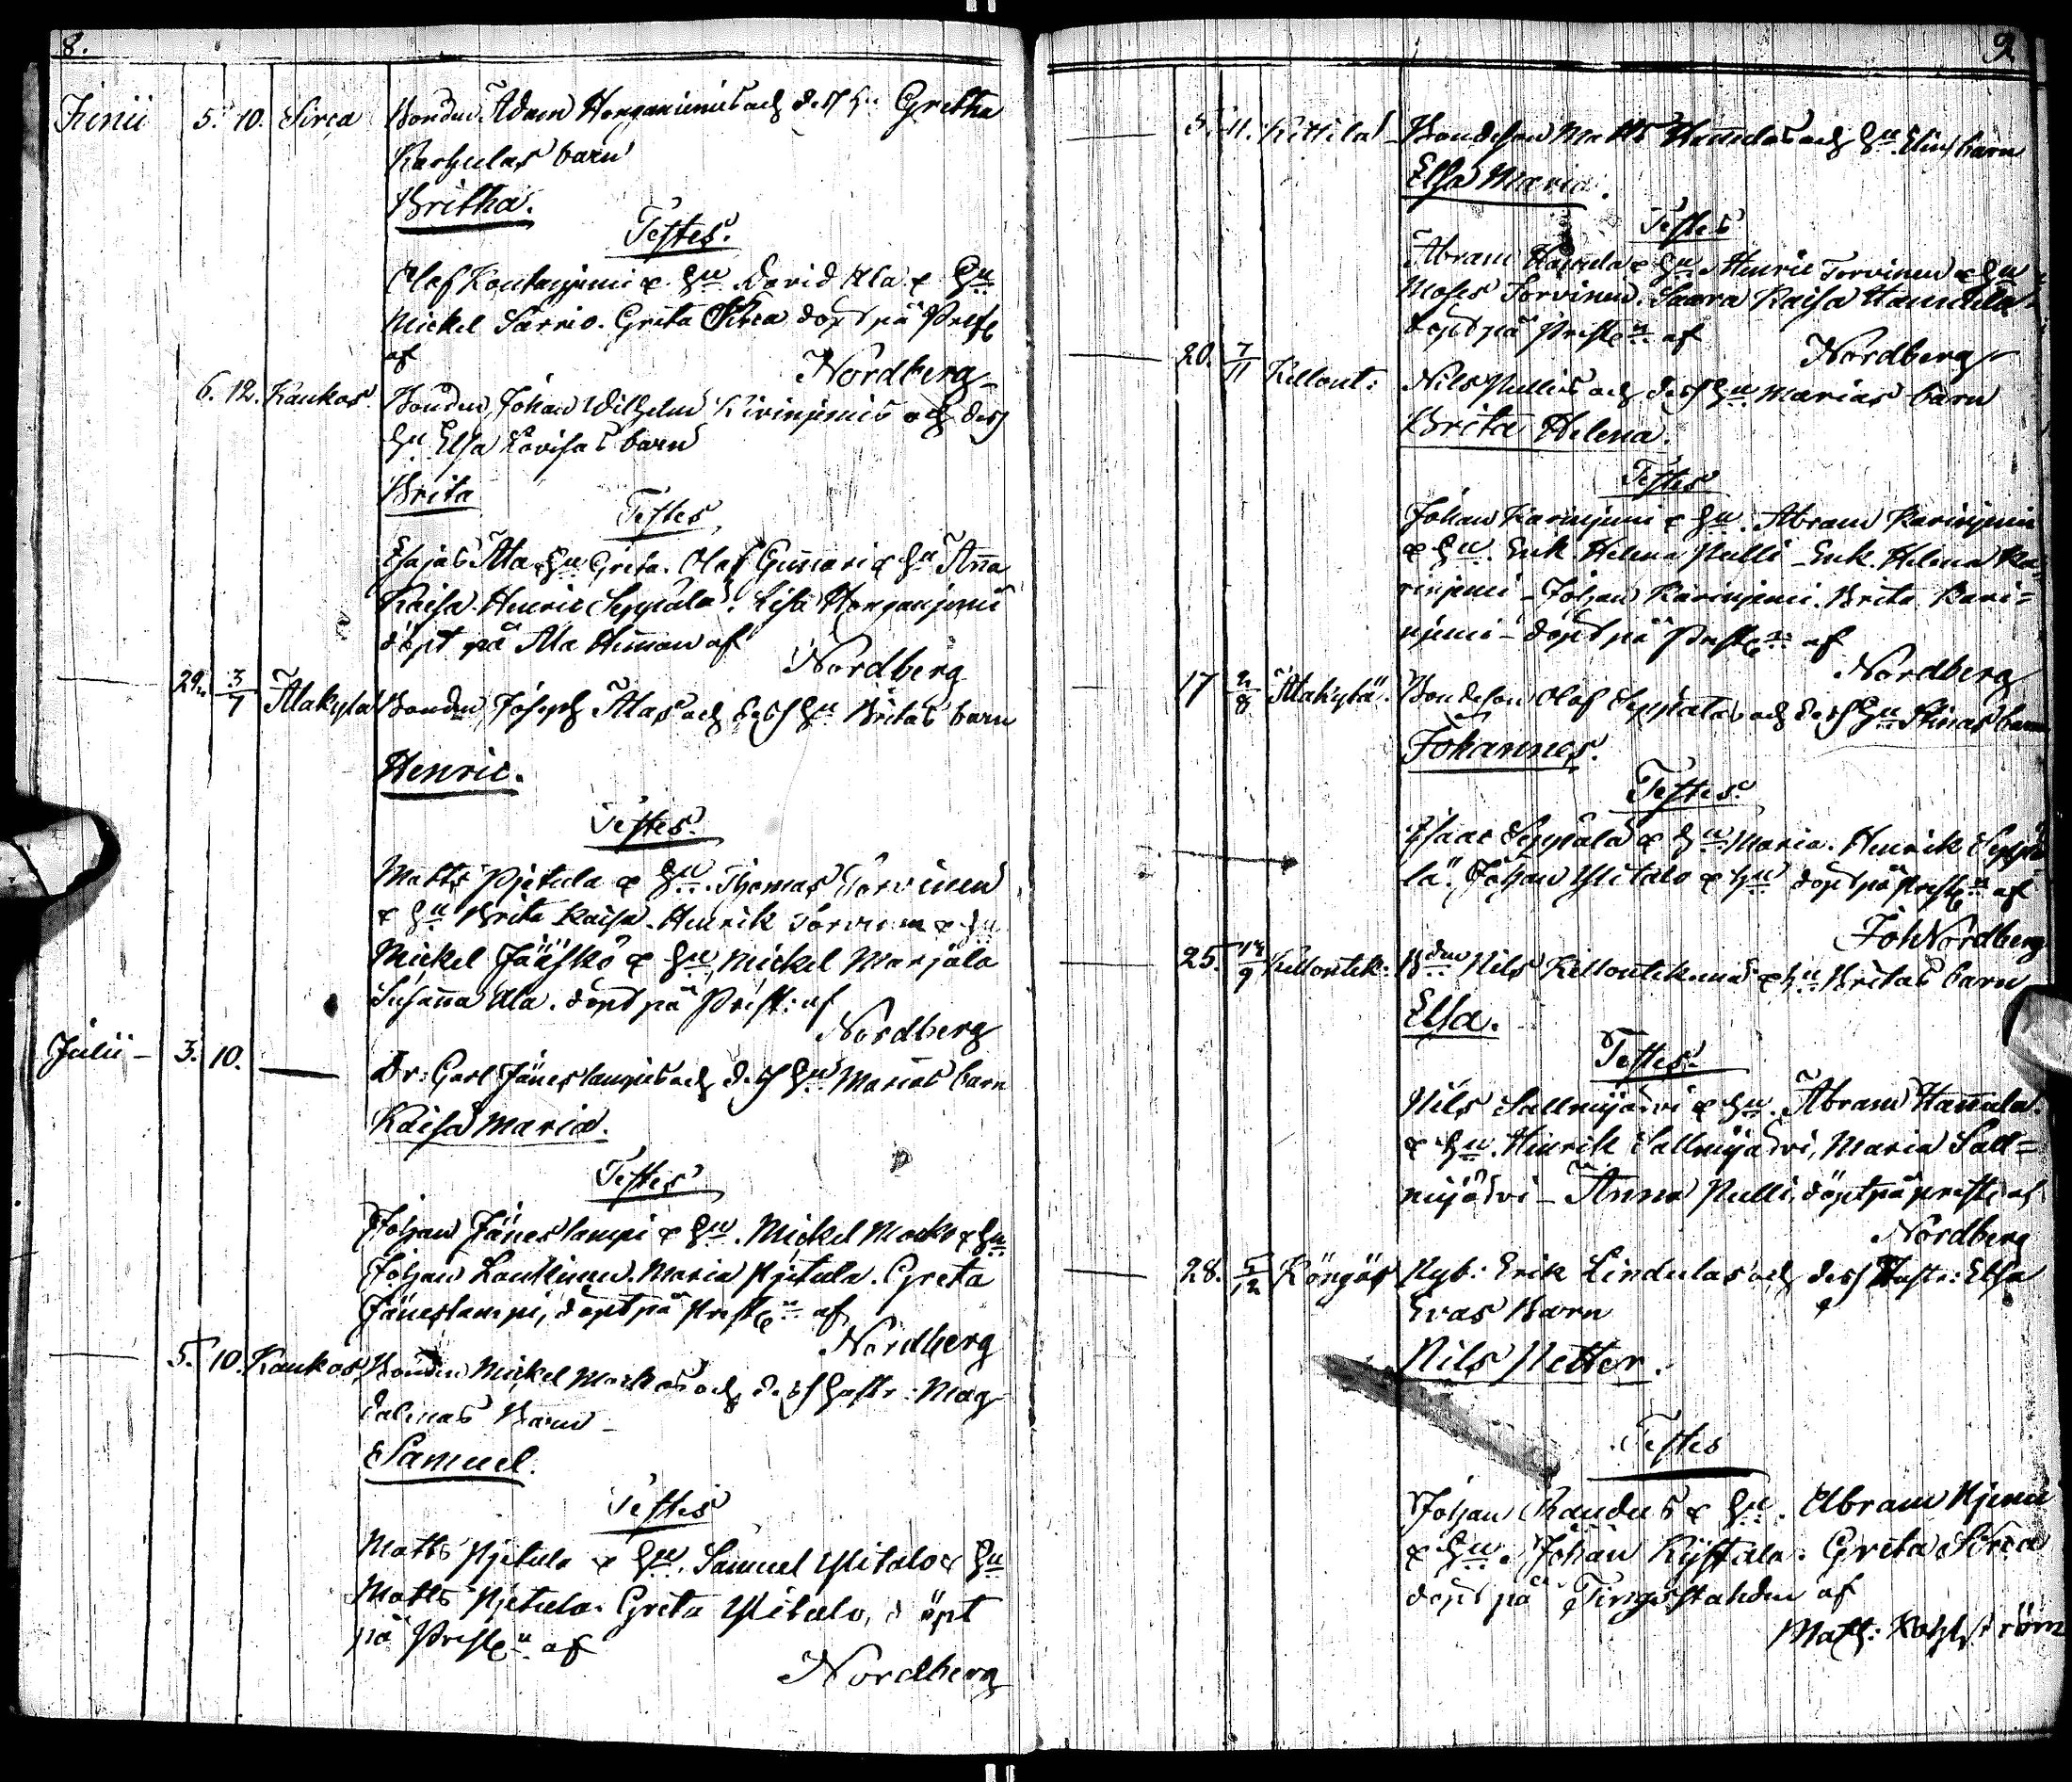 8.
Junii 5. 10. Sirca Bonden Adam Honganiemis och dess hu Gretha
Karhulas barn
Britha.
Testes.
Olof Kontanjemi & hu David Ala & hu
Mickel Sarrio. Greta Sirca döpt på Prestg
af
Nordberg
6. 12. Kaukos. Bonden Johan Wilhelm Kivinjemis och dess
hu Elsa Lovisas barn
Brita
Testes
Esajas Ala & hu Greta. Olof Gunnari & hu Anna
Kaisa. Henric Seppälä. Lisa Honganjemi
döpt på Ala Heman af
Nordberg
29. 3/7 Alakylä Bonden Joseph Alas och dess hu Britas barn
Henric.
Testes.
Matts Pjetula & hu. Thomas Torvinen
& hu Brita Kaisa. Henrik Torvinen & hu
Mickel Jääskö & hu, Mickel Marjala
Susanna Ala. döpt på Prest: af
Nordberg
Julii - 3. 10. Br: Carl Jäneslampis och dess hu Marias barn
Kaisa Maria.
Testes
Johan Jäneslampi & hu. Mickel Marko & hu
Johan Lantinen. Maria Pjetula. Greta
Jäneslampi, döpt på Prestgn af
Nordberg
5. 10. Kaukos, Bonden Mickel Markos och dess hustr: Mag-
dalenas Barn -
Samuel.
Testes
Matts Pjetula & hu. Samuel Ylitalo & hu
Matts Pjetula. Greta Ylitalo, döpt
på Prestgn af
Nordberg
9.
5. 11. Kittilä Bondeson Matts Hannulas och hu. Elins barn
Elsa Maria.
Testes
Abram Hannula & hu. Henric Torvinen & hu
Moses Torvinen. Saara Kaisa Hannula
döpt på Prestgn af
Nordberg
20. 7/11 Kellont: Nils Pullis och dess hu Marias barn
Brita Helena.
Testes
Johan Karinjemi & hu. Abram Karinjemi
& hu. Enk. Helena Pulli - Enk. Helena Ka-
rinjemi - Johan Karinjemi. Brita Kari=
njemi - döpt på Prestgn af
Nordberg
17 2/8 Alakylä. Bondeson Olof Seppälas och dess hu Stinas barn
Johannes.
Testes.
Isaac Seppälä & hu Maria. Henrik Seppä
lä. Johan Ylitalo & hu döpt på Prestgn af
Joh Nordberg
25. 14/9 Kellontek: Bden Nils Kellontekemäs & hu Britas barn
Elsa.
Testes.
Nils Sallmijärvi & hu. Abram Hannula.
& hu. Henrik Sallmijärvi, Maria Sall=
mijärvi - Anna Pulli. döpt på prestg af
Nordberg
28. 5/12 Köngös Nyb: Erik Lindulas och dess Hustr: Elsa
Evas Barn
Nils Petter.
Testes
Johan Raudus & hu. Abram Njemi
& hu. Johan Kystula. Greta Sirca
döpt på Tingsstaden af
Math: Wahlström